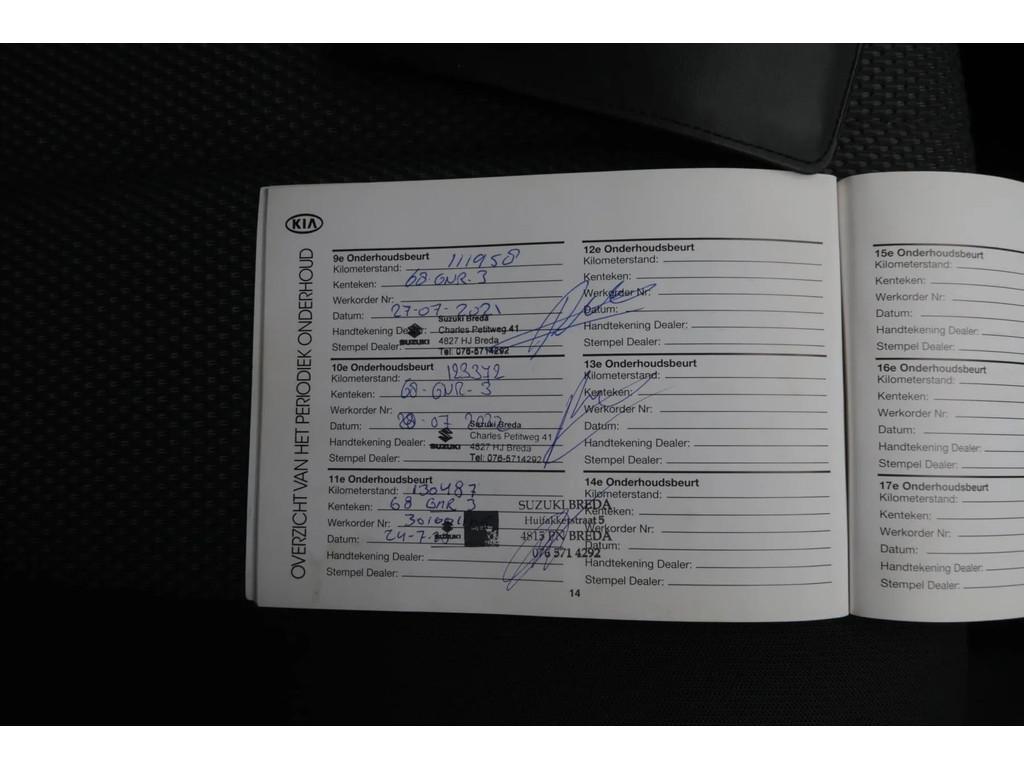 KIA
OVERZICHT VAN HET PERIODIEK ONDERHOUD
9e Onderhoudsbeurt
Kilometerstand: 111958
Kenteken: 68-GNR-3
Werkorder Nr:
Datum: 27-07-2021
Handtekening Dealer:
Stempel Dealer:
SUZUKI
Suzuki Breda
Charles Petitweg 41
4827 HJ Breda
Tel: 076-5714292
10e Onderhoudsbeurt
Kilometerstand: 123372
Kenteken: 68-GNR-3
Werkorder Nr:
Datum: 28-07 2022
Handtekening Dealer:
Stempel Dealer:
SUZUKI
Suzuki Breda
Charles Petitweg 41
4827 HJ Breda
Tel: 076-5714292
11e Onderhoudsbeurt
Kilometerstand: 130487
Kenteken: 68 GNR 3
Werkorder Nr:
Datum: 24-7-
Handtekening Dealer:
Stempel Dealer:
SUZUKI
SUZUKI BREDA
Huifakkerstraat 5
4815 PN BREDA
076 571 4292
12e Onderhoudsbeurt
Kilometerstand:
Kenteken:
Werkorder Nr:
Datum:
Handtekening Dealer:
Stempel Dealer:
13e Onderhoudsbeurt
Kilometerstand:
Kenteken:
Werkorder Nr:
Datum:
Handtekening Dealer:
Stempel Dealer:
14e Onderhoudsbeurt
Kilometerstand:
Kenteken:
Werkorder Nr:
Datum:
Handtekening Dealer:
Stempel Dealer:
14
15e Onderhoudsbeurt
Kilometerstand:
Kenteken:
Werkorder Nr:
Datum:
Handtekening Dealer:
Stempel Dealer:
16e Onderhoudsbeurt
Kilometerstand:
Kenteken:
Werkorder Nr:
Datum:
Handtekening Dealer:
Stempel Dealer:
17e Onderhoudsbeurt
Kilometerstand:
Kenteken:
Werkorder Nr:
Datum:
Handtekening Dealer:
Stempel Dealer: